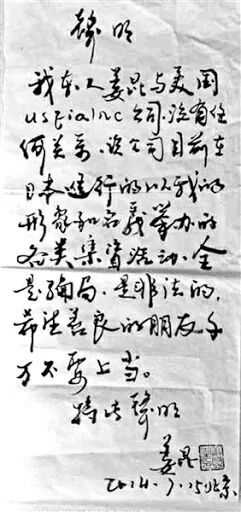 声明
我本人姜昆与美国
usfiainc公司没有任
何关系。该公司目前在
日本进行的以我的
形象和名义举办的
各类集资活动,全
是骗局,是非法的,
希望善良的朋友千
万不要上当。
特此声明
姜昆
北京